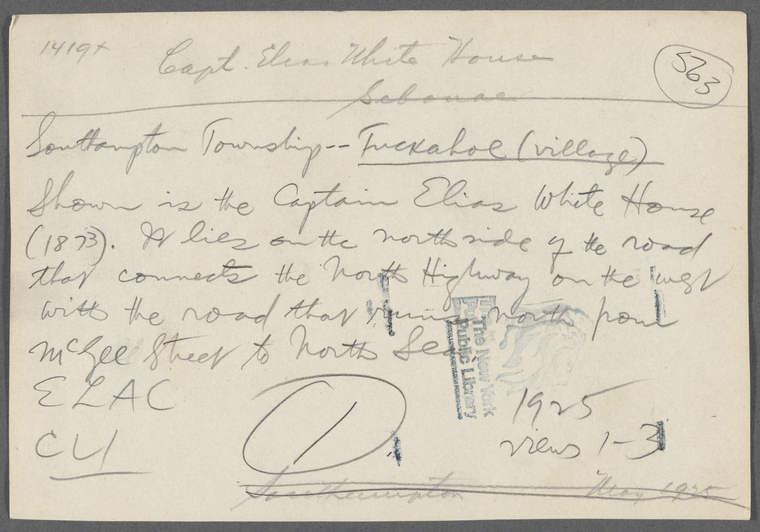 1419+
Capt. Elias White House
563
Sebonac
Southampton Township -- Tuckahoe (village)
Shown is the Captain Elias White House
(1873). It lies on the north side of the road
that connects the North Highway on the west
with the road that runs north from
McGee Street to North Sea.
The New York
Public Library
ELAC
1925
CU
1
views 1-3
Southampton
May 1925